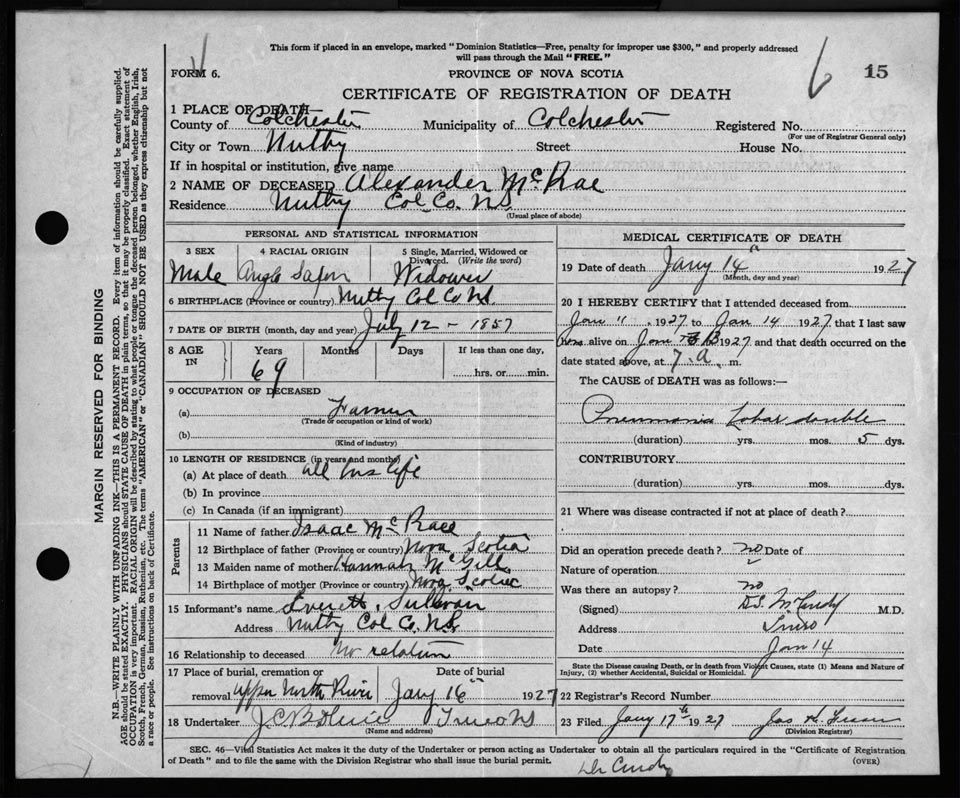 This form if placed in an envelope, marked "Dominion Statistics—Free, penalty for improper use $300," and properly addressed
will pass through the Mail "FREE."
FORM 6.
PROVINCE OF NOVA SCOTIA
6
15
CERTIFICATE OF REGISTRATION OF DEATH
1 PLACE OF DEATH—
County of Colchester Municipality of Colchester Registered No.
(For use of Registrar General only)
City or Town Nuttby Street House No.
If in hospital or institution, give name
2 NAME OF DECEASED Alexander McRae
Residence Nuttby Col Co. N.S.
(Usual place of abode)
PERSONAL AND STATISTICAL INFORMATION
3 SEX 4 RACIAL ORIGIN 5 Single, Married, Widowed or
Divorced. (Write the word)
Male Anglo Saxon Widower
6 BIRTHPLACE (Province or country) Nuttby Col Co N.S.
7 DATE OF BIRTH (month, day and year) July 12 - 1857
8 AGE IN Years Months Days If less than one day,
69 hrs. or min.
9 OCCUPATION OF DECEASED
(a) Farmer
(Trade or occupation or kind of work)
(b)
(Kind of industry)
10 LENGTH OF RESIDENCE (in years and months)
(a) At place of death all his life
(b) In province
(c) In Canada (if an immigrant)
Parents
11 Name of father Isaac McRae
12 Birthplace of father (Province or country) Nova Scotia
13 Maiden name of mother Hannah McGill
14 Birthplace of mother (Province or country) Nova Scotia
15 Informant's name Everett Sullivan
Address Nuttby Col Co. N.S.
16 Relationship to deceased No relation
17 Place of burial, cremation or Date of burial
removal Upper North River Jany 16 1927
18 Undertaker Truro NS
(Name and address)
MEDICAL CERTIFICATE OF DEATH
19 Date of death Jany 14 1927
(Month, day and year)
20 I HEREBY CERTIFY that I attended deceased from
Jan 11, 1927 to Jan 14 1927 that I last saw
him alive on Jan 13 1927 and that death occurred on the
date stated above, at 7 a. m.
The CAUSE OF DEATH was as follows:
Pneumonia Lobar double
(duration) yrs. mos. 5 dys.
CONTRIBUTORY
(duration) yrs. mos. dys.
21 Where was disease contracted if not at place of death?
Did an operation precede death? no Date of
Nature of operation
Was there an autopsy? no
(Signed) D.S. McCurdy M.D.
Address Truro
Date Jan 14
State the Disease causing Death, or in death from Violent Causes, state (1) Means and Nature of
Injury, (2) whether Accidental, Suicidal or Homicidal.
22 Registrar's Record Number
23 Filed Jany 17th 1927 Jas
(Division Registrar)
SEC. 46—Vital Statistics Act makes it the duty of the Undertaker or person acting as Undertaker to obtain all the particulars required in the "Certificate of Registration
of Death" and to file the same with the Division Registrar who shall issue the burial permit.
(OVER)
McCurdy
MARGIN RESERVED FOR BINDING
N.B.—WRITE PLAINLY WITH UNFADING INK—THIS IS A PERMANENT RECORD. Every item of information should be carefully supplied.
AGE should be stated EXACTLY. PHYSICIANS should STATE CAUSE OF DEATH in plain terms, so that it may be properly classified. Exact statement of
OCCUPATION is very important. RACIAL ORIGIN will be described by stating to what people or tongue the deceased person belonged, whether English, Irish,
Scotch, French, German, Russian, Ruthenian, etc. The terms "AMERICAN" or "CANADIAN" SHOULD NOT BE USED as they express citizenship but not
a race or people. See instructions on back of Certificate.